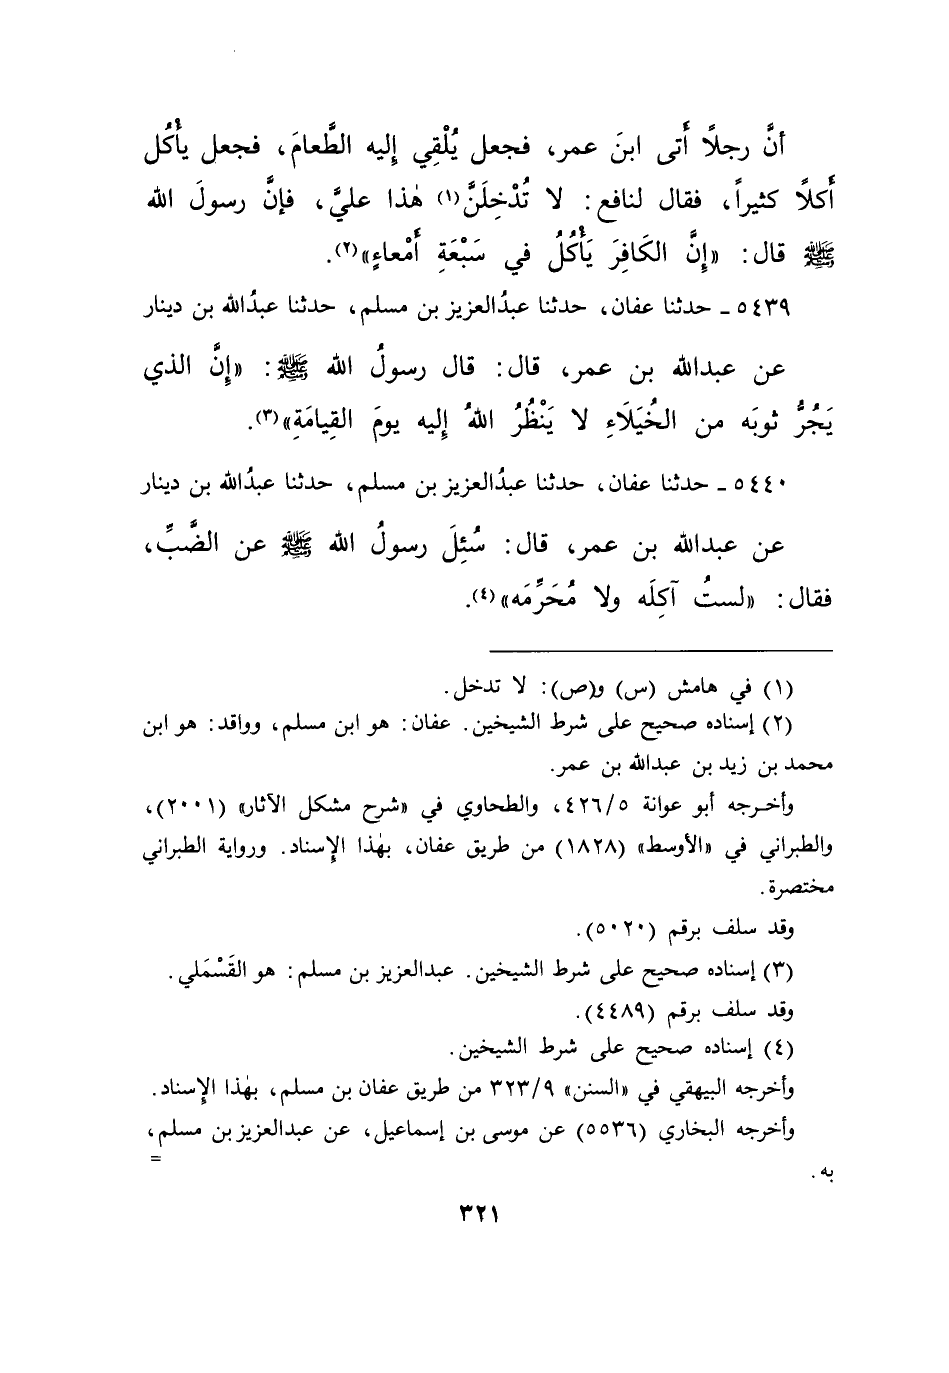 أنَّ رجلًا أَتى ابنَ عمر، فجعل يُلْقِي إليه الطَّعامَ، فجعل يأْكُل
أَكلًا كثيراً، فقال لنافع: لا تُدْخِلَنَّ(١) هٰذا عليَّ، فإنَّ رسولَ الله
ﷺ قال: «إِنَّ الكَافِرَ يَأْكُلُ في سَبْعَةِ أَمْعاءٍ»(٢).
٥٤٣٩ ـ حدثنا عفان، حدثنا عبدُالعزيز بن مسلم، حدثنا عبدُالله بن دينار
عن عبدالله بن عمر، قال: قال رسولُ الله ﷺ: «إِنَّ الذي
يَجُرُّ ثوبَه من الخُيَلَاءِ لا يَنْظُرُ اللهُ إِليه يومَ القِيامَةِ»(٣).
٥٤٤٠ ـ حدثنا عفان، حدثنا عبدُالعزيز بن مسلم، حدثنا عبدُالله بن دينار
عن عبدالله بن عمر، قال: سُئِلَ رسولُ الله ﷺ عن الضَّبِّ،
فقال: «لستُ آكِلَه ولا مُحَرِّمَه»(٤).
(١) في هامش (س) و(ص): لا تدخل.
(٢) إسناده صحيح على شرط الشيخين. عفان: هو ابن مسلم، وواقد: هو ابن
محمد بن زيد بن عبدالله بن عمر.
وأخرجه أبو عوانة ٤٢٦/٥، والطحاوي في «شرح مشكل الآثار» (٢٠٠١)،
والطبراني في «الأوسط» (١٨٢٨) من طريق عفان، بهٰذا الإسناد. ورواية الطبراني
مختصرة.
وقد سلف برقم (٥٠٢٠).
(٣) إسناده صحيح على شرط الشيخين. عبدالعزيز بن مسلم: هو القَسْمَلي.
وقد سلف برقم (٤٤٨٩).
(٤) إسناده صحيح على شرط الشيخين.
وأخرجه البيهقي في «السنن» ٣٢٣/٩ من طريق عفان بن مسلم، بهٰذا الإسناد.
وأخرجه البخاري (٥٥٣٦) عن موسى بن إسماعيل، عن عبدالعزيز بن مسلم،
به. =
٣٢١